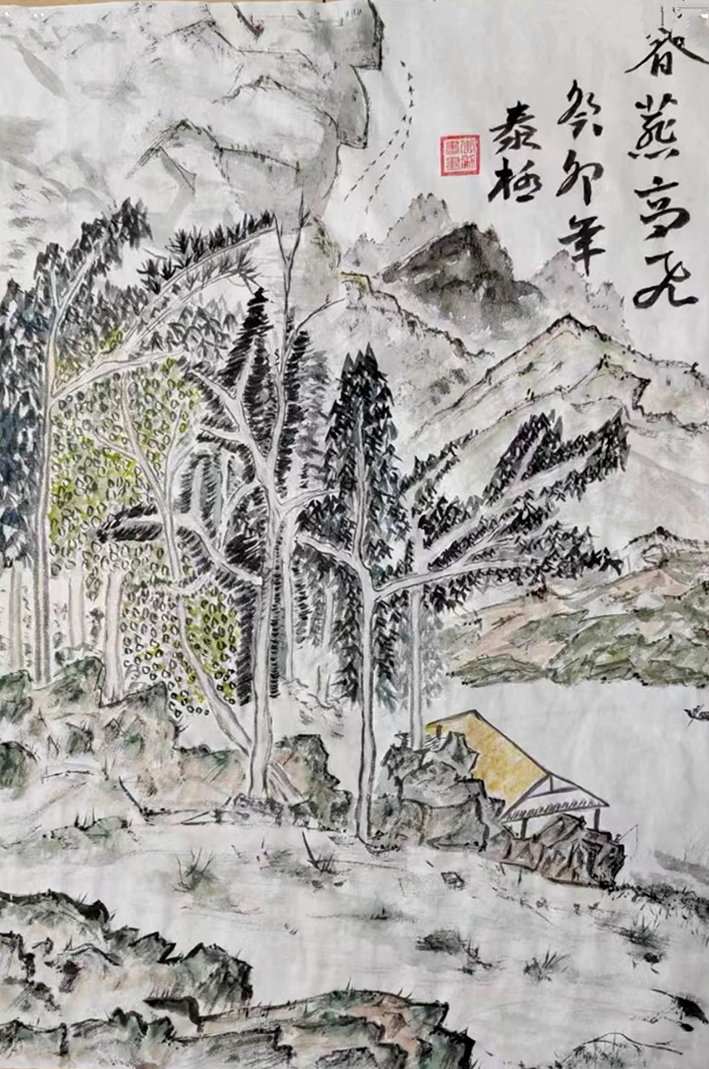 春燕高飞
癸卯年
泰極